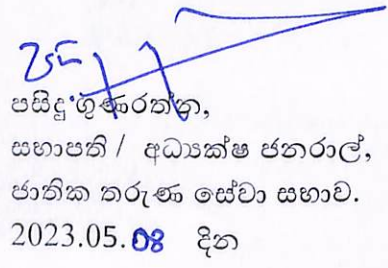 පසිඳු ගුණරත්න,
සභාපති / අධ්‍යක්ෂ ජනරාල්,
ජාතික තරුණ සේවා සභාව.
2023.05.08 දින